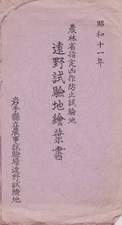 昭和十一年
農林省指定凶作防止試験地
遠野試験地繪葉書
岩手縣立農事試験場遠野試験地